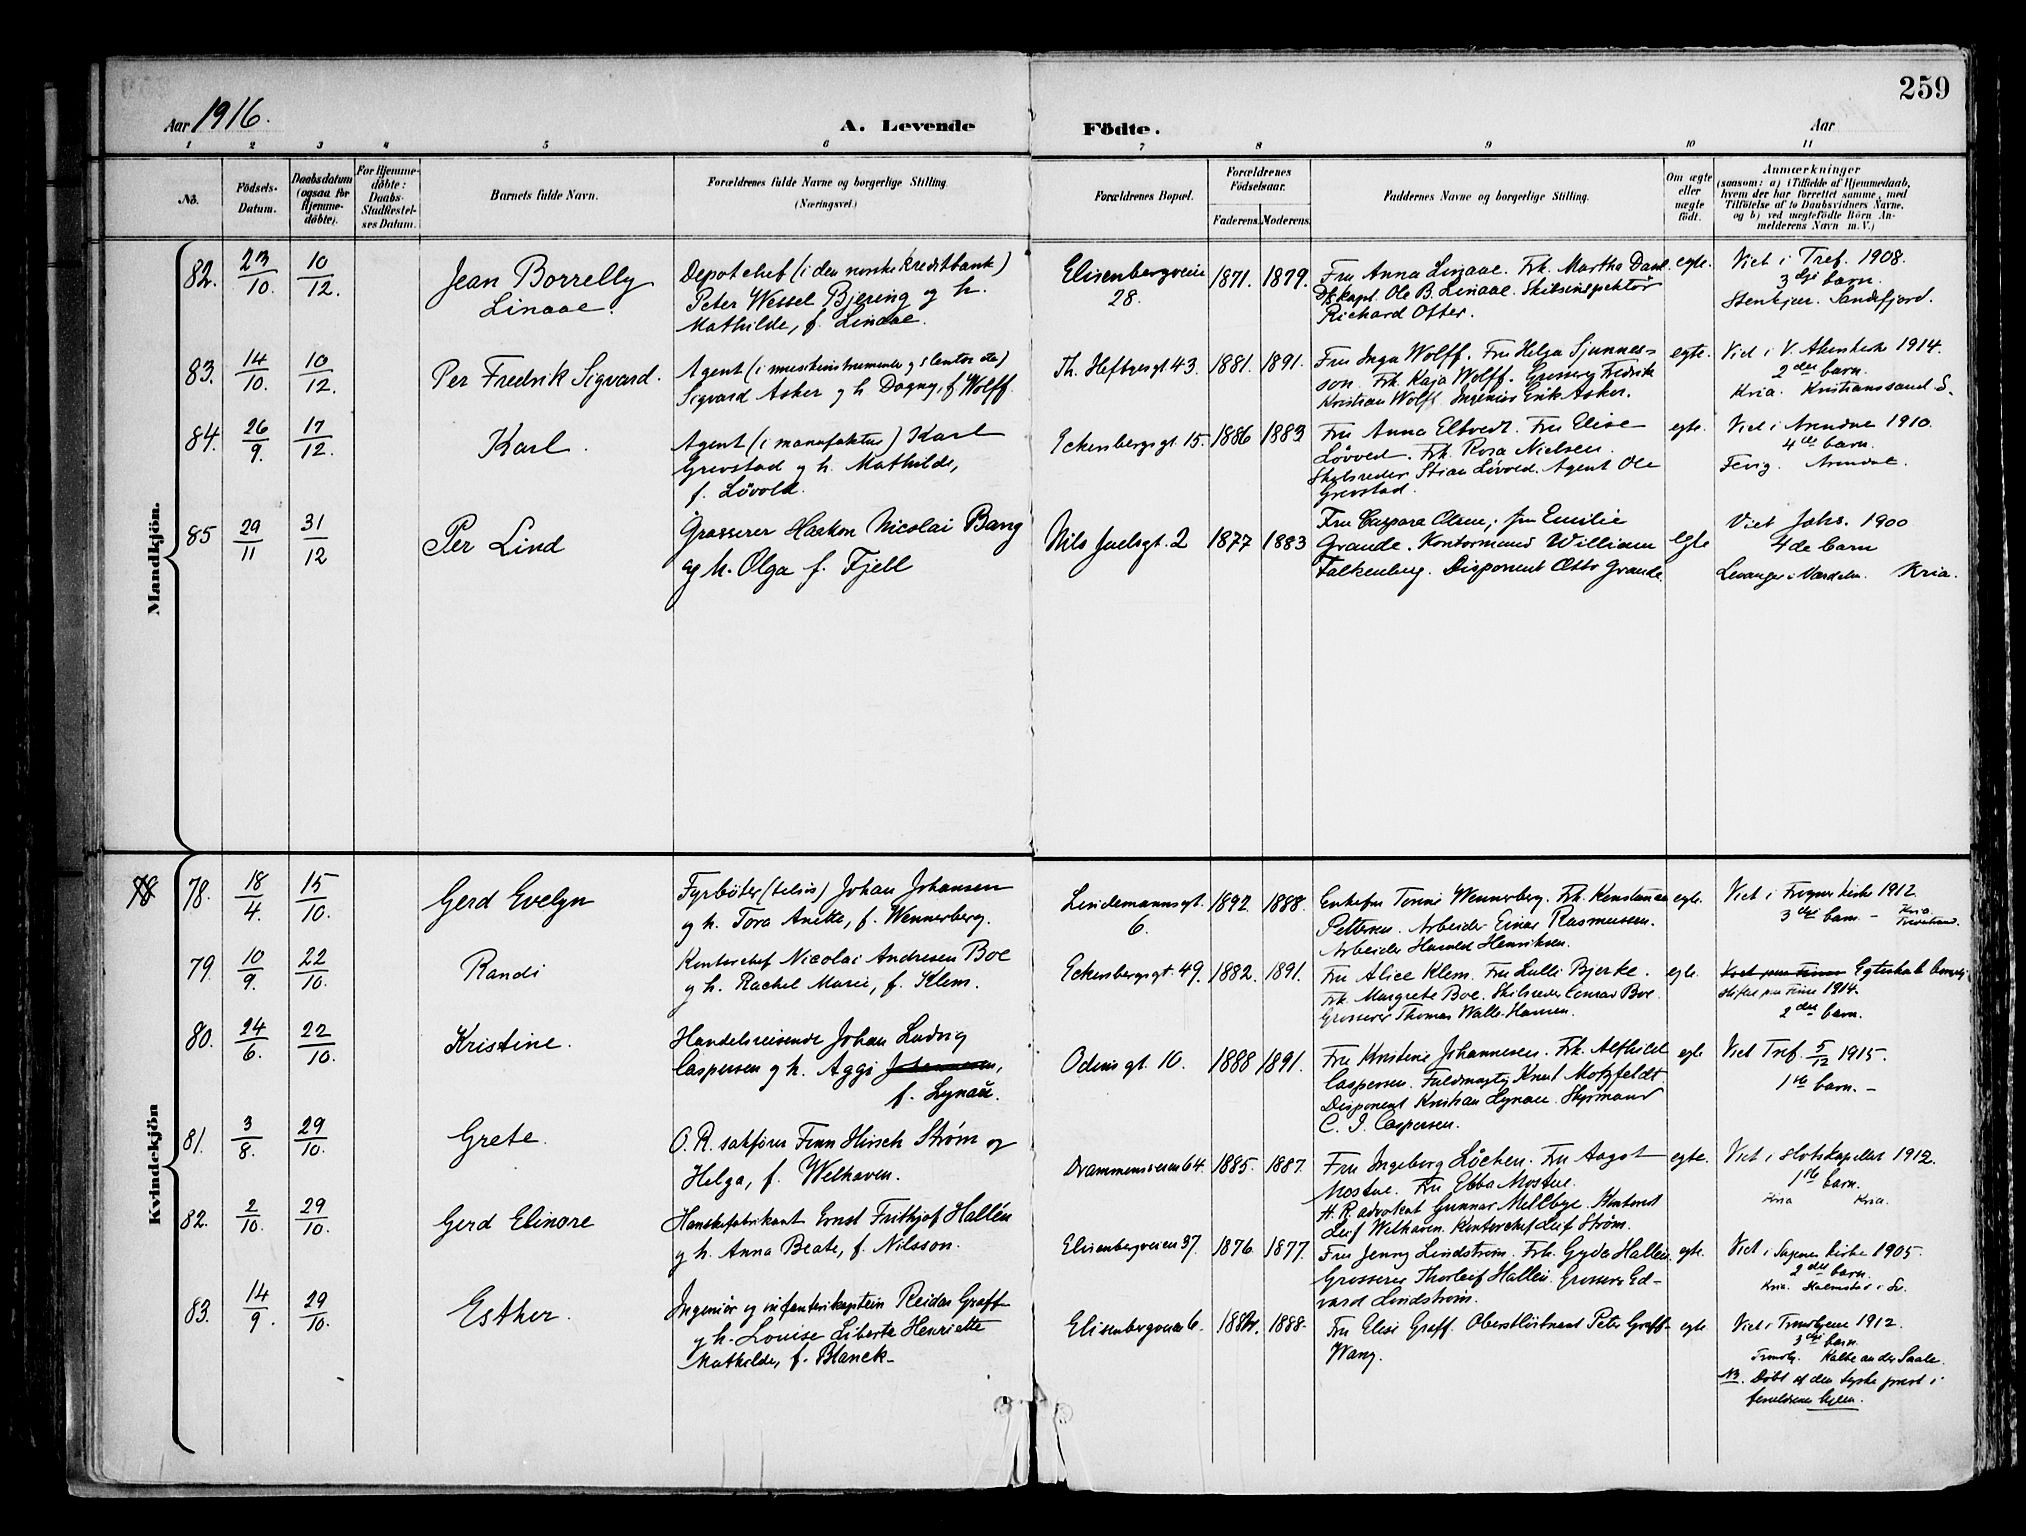 259
Aar 1916.
A. Levende Födte.
Aar
1 2 3 4 5 6 7 8 9 10 11
No.
Födsels-
Datum.
Daabsdatum
(ogsaa for
Hjemme-
döbte).
For Hjemme-
döbte:
Daabs-
Stadfæstel-
ses Datum.
Barnets fulde Navn.
Forældrenes fulde Navne og borgerlige Stilling.
(Næringsvei.)
Forældrenes Bopæl.
Forældrenes
Födselsaar.
Faderens. Moderens.
Faddernes Navne og borgerlige Stilling.
Om ægte
eller
uægte
födt.
Anmærkninger
(saasom: a) i Tilfælde af Hjemmedaab,
hvem der har forrettet samme, med
Tilföielse af to Daabsvidners Navne,
og b) ved uægtefödte Börn An-
melderens Navn m. V.)
Mandkjön.
82. 23/10. 10/12.
Jean Borrelly
Linaae.
Depotchef (i den norske Kreditbank)
Peter Wessel Bjering og h.
Mathilde, f. Linaae.
Elisenbergveien
28.
1871. 1879.
Fru Anna Linaae. Frk. Martha Dahl.
Dskapt. Ole B. Linaae. Skibsinspektör
Richard Ofter.
egte.
Viet i Tref. 1908.
3dje barn.
Stenkjær. Sandefjord.
83. 14/10. 10/12.
Per Fredrik Sigvard.
Agent (i musikinstrumenter
Sigvard Asker og h. Dagny, f. Wolff.
Th. Heftyesgt 43. 1881. 1891.
Fru Inga Wolff. Fru Helga Sjunnes-
son. Frk. Kaja Wolff. Grosserer Fredrik
Kristian Wolff. Ingeniør Erik Asker.
egte.
Viet i V. Akers kirke 1914.
2det barn.
Kria. Kristianssand S.
84. 26/9. 17/12.
Karl.
Agent (i manufaktur) Karl
Grevstad og h. Mathilde,
f. Lövold.
Eckersbergsgt 15. 1886 1883
Fru Anna Eltvedt. Fru Elise
Lövved. Frk. Rosa Nielsen.
Skibsreder Stian Lövold. Agent Ole
Grevstad.
egte.
Viet i Arendal 1910.
4de barn.
Fevig. Arendal.
85 29/11 31/12
Per Lind
Grosserer Haakon Nicolai Bang
og h. Olga f. Fjell
Nils Juelsgt. 2 1877 1883
Fru Caspara Olsen; fru Emilie
Grande. Kontormand William
Falkenberg. Disponent Otto Grande
egte
Viet Johs. 1900
4de barn
Levanger i Værdalen. Kria.
Kvindekjön
78 78. 18/4. 15/10.
Gerd Evelyn
Fyrbøter (tilsjøs) Johan Johansen
og h. Tora Anette, f. Wennerberg.
Lindemannsgt.
6.
1892. 1888.
Enkefru Tonni Wennerberg. Frk. Konstanse
Pettersen. Arbeider Einar Rasmussen.
Arbeider Harald Henriksen.
egte.
Viet i Frogner kirke 1912
3dje barn – Kria.
79. 10/9. 22/10.
Randi
Kontorchef Nicolai Andresen Boe
og h. Rachel Marie, f. Klem.
Eckersbergsgt. 49. 1882. 1891.
Fru Alice Klem. Fru Lulli Bjerke.
Frk. Margrete Boe. Skibsreder Conrad Boe.
Grosserer Thomas Walle-Hansen.
egte.
Egteskab borgerlig
stiftet paa 1914.
2det barn.
80. 24/6. 22/10.
Kristine.
Handelsreisende Johan Ludvig
Caspersen og h. Aggi Johannesen,
f. Lynau.
Odinsgt. 10. 1888 1891.
Fru Kristine Johannesen. Frk. Alfhild
Caspersen. Fuldmægtig Knut Motzfeldt.
Disponent Kristian Lynau. Styrmand
C. J. Caspersen.
egte
Viet Tref. 5/12 1915.
1ste barn. –
81. 3/8. 29/10.
Grete.
O. R. sakfører Finn Hirsch Strøm og
Helga, f. Welhaven.
Drammensveien 64. 1885. 1887.
Fru Ingeborg Løchen. Fru Aagot
Mostue. Fru Ebba Mostue.
H. R. advokat Gunnar Mellbye. Student
Leif Welhaven. Kontorchef Leif Strøm.
egte.
Viet i slotskapellet 1912.
1ste barn.
Kria Kria.
82. 2/10. 29/10.
Gerd Elinore
Hanskefabrikant Ernst Frithjof Hallén
og h. Anna Beate, f. Nilsson.
Elisenbergveien 37. 1876 1877.
Fru Jenny Lindstrøm. Frk. Gyda Hallén.
Grosserer Thorleif Hallén. Grosserer Ed-
vard Lindstrøm.
egte.
Viet i Sagene kirke 1905.
2det barn.
Kria. Halmstad i Sv.
83. 14/9. 29/10.
Esther.
Ingeniør og infanterikaptein Reidar Graff-
og h. Louise Liberta Henriette
Mathilde, f. Blanck-
Elisenbergveien 6. 1888.
Fru Elise Graff. Oberstløitnant Peter Graff-
Wang.
egte
Viet i 1912.
3dje barn.
Kalbe an der Saale.
NB. Döbt af den tyske prest i
forældrenes hjem.